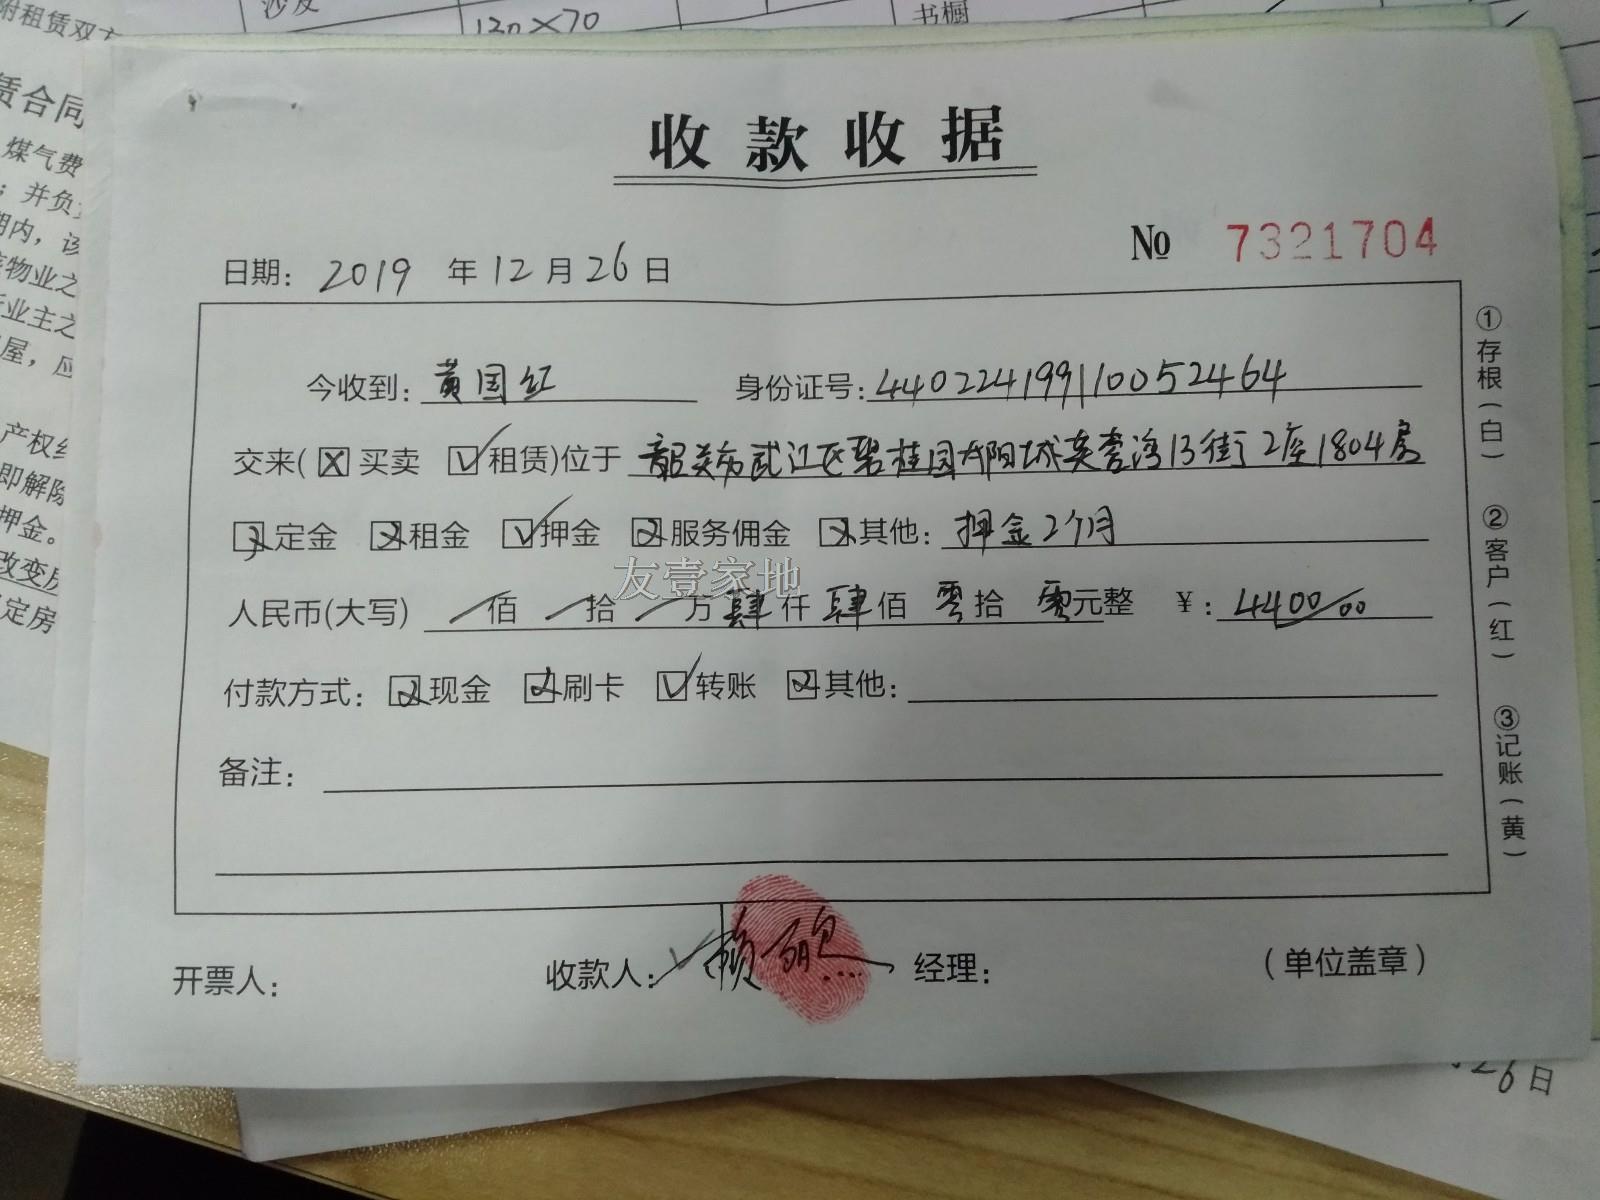 附租赁双方
沙发
120×70
书橱
赁合同
煤气费
；并负
期内，该
物业之
业主之
屋，应
产权
即解除
押金。
改变房
定房
收款收据
№ 7321704
日期：2019 年 12 月 26 日
今收到：黄国红 身份证号：440224199110052464
交来(☒买卖 ☑租赁)位于 韶关市武江区碧桂园太阳城芙蓉湾13街2座1804房
☒定金 ☒租金 ☑押金 ☒服务佣金 ☒其他：押金2个月
友壹家地
人民币(大写) / 佰 / 拾 / 万 肆 仟 肆 佰 零 拾 零 元整 ¥：4400/00
付款方式：☒现金 ☒刷卡 ☑转账 ☒其他：
备注：
开票人： 收款人：赖 经理： （单位盖章）
①存根（白）
②客户（红）
③记账（黄）
26日